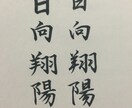 日向翔陽
日向翔陽